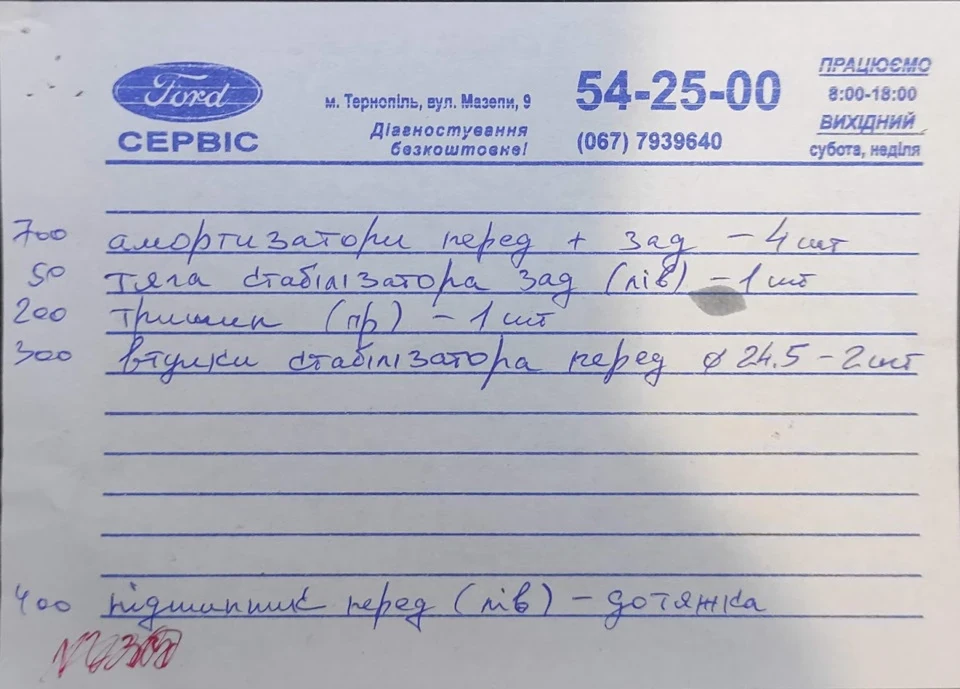 Ford
СЕРВІС
м. Тернопіль, вул. Мазепи, 9
Діагностування
безкоштовне!
54-25-00
(067) 7939640
ПРАЦЮЄМО
8:00-18:00
ВИХІДНИЙ
субота, неділя
700 амортизатори перед + зад - 4 шт
50 тяга стабілізатора зад (лів) - 1 шт
200 (пр) - 1 шт
300 втулки стабілізатора перед ø 24.5 - 2 шт
400 підшипник перед (лів) - дотяжка